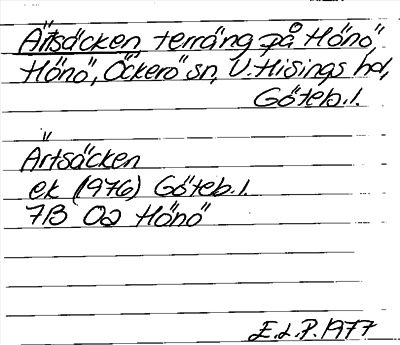 Ärtsäcken terräng på Hönö,
Hönö, Öckerö sn, V. Hisings hd,
Göteb. l.
Ärtsäcken
ek (1976) Göteb. l.
7B 0a Hönö
E.L.P. 1977